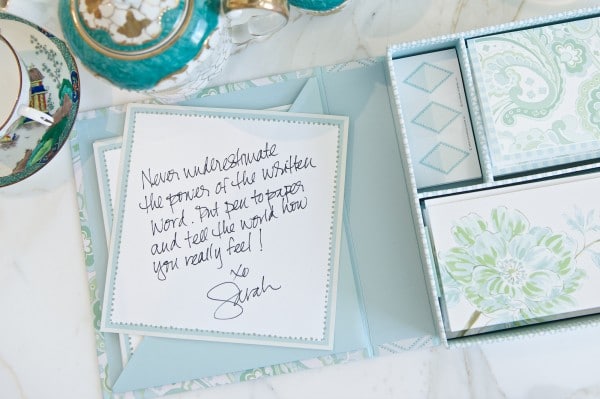 Never underestimate
the power of the written
word. Put pen to paper
and tell the world how
you really feel!
xo
Sarah